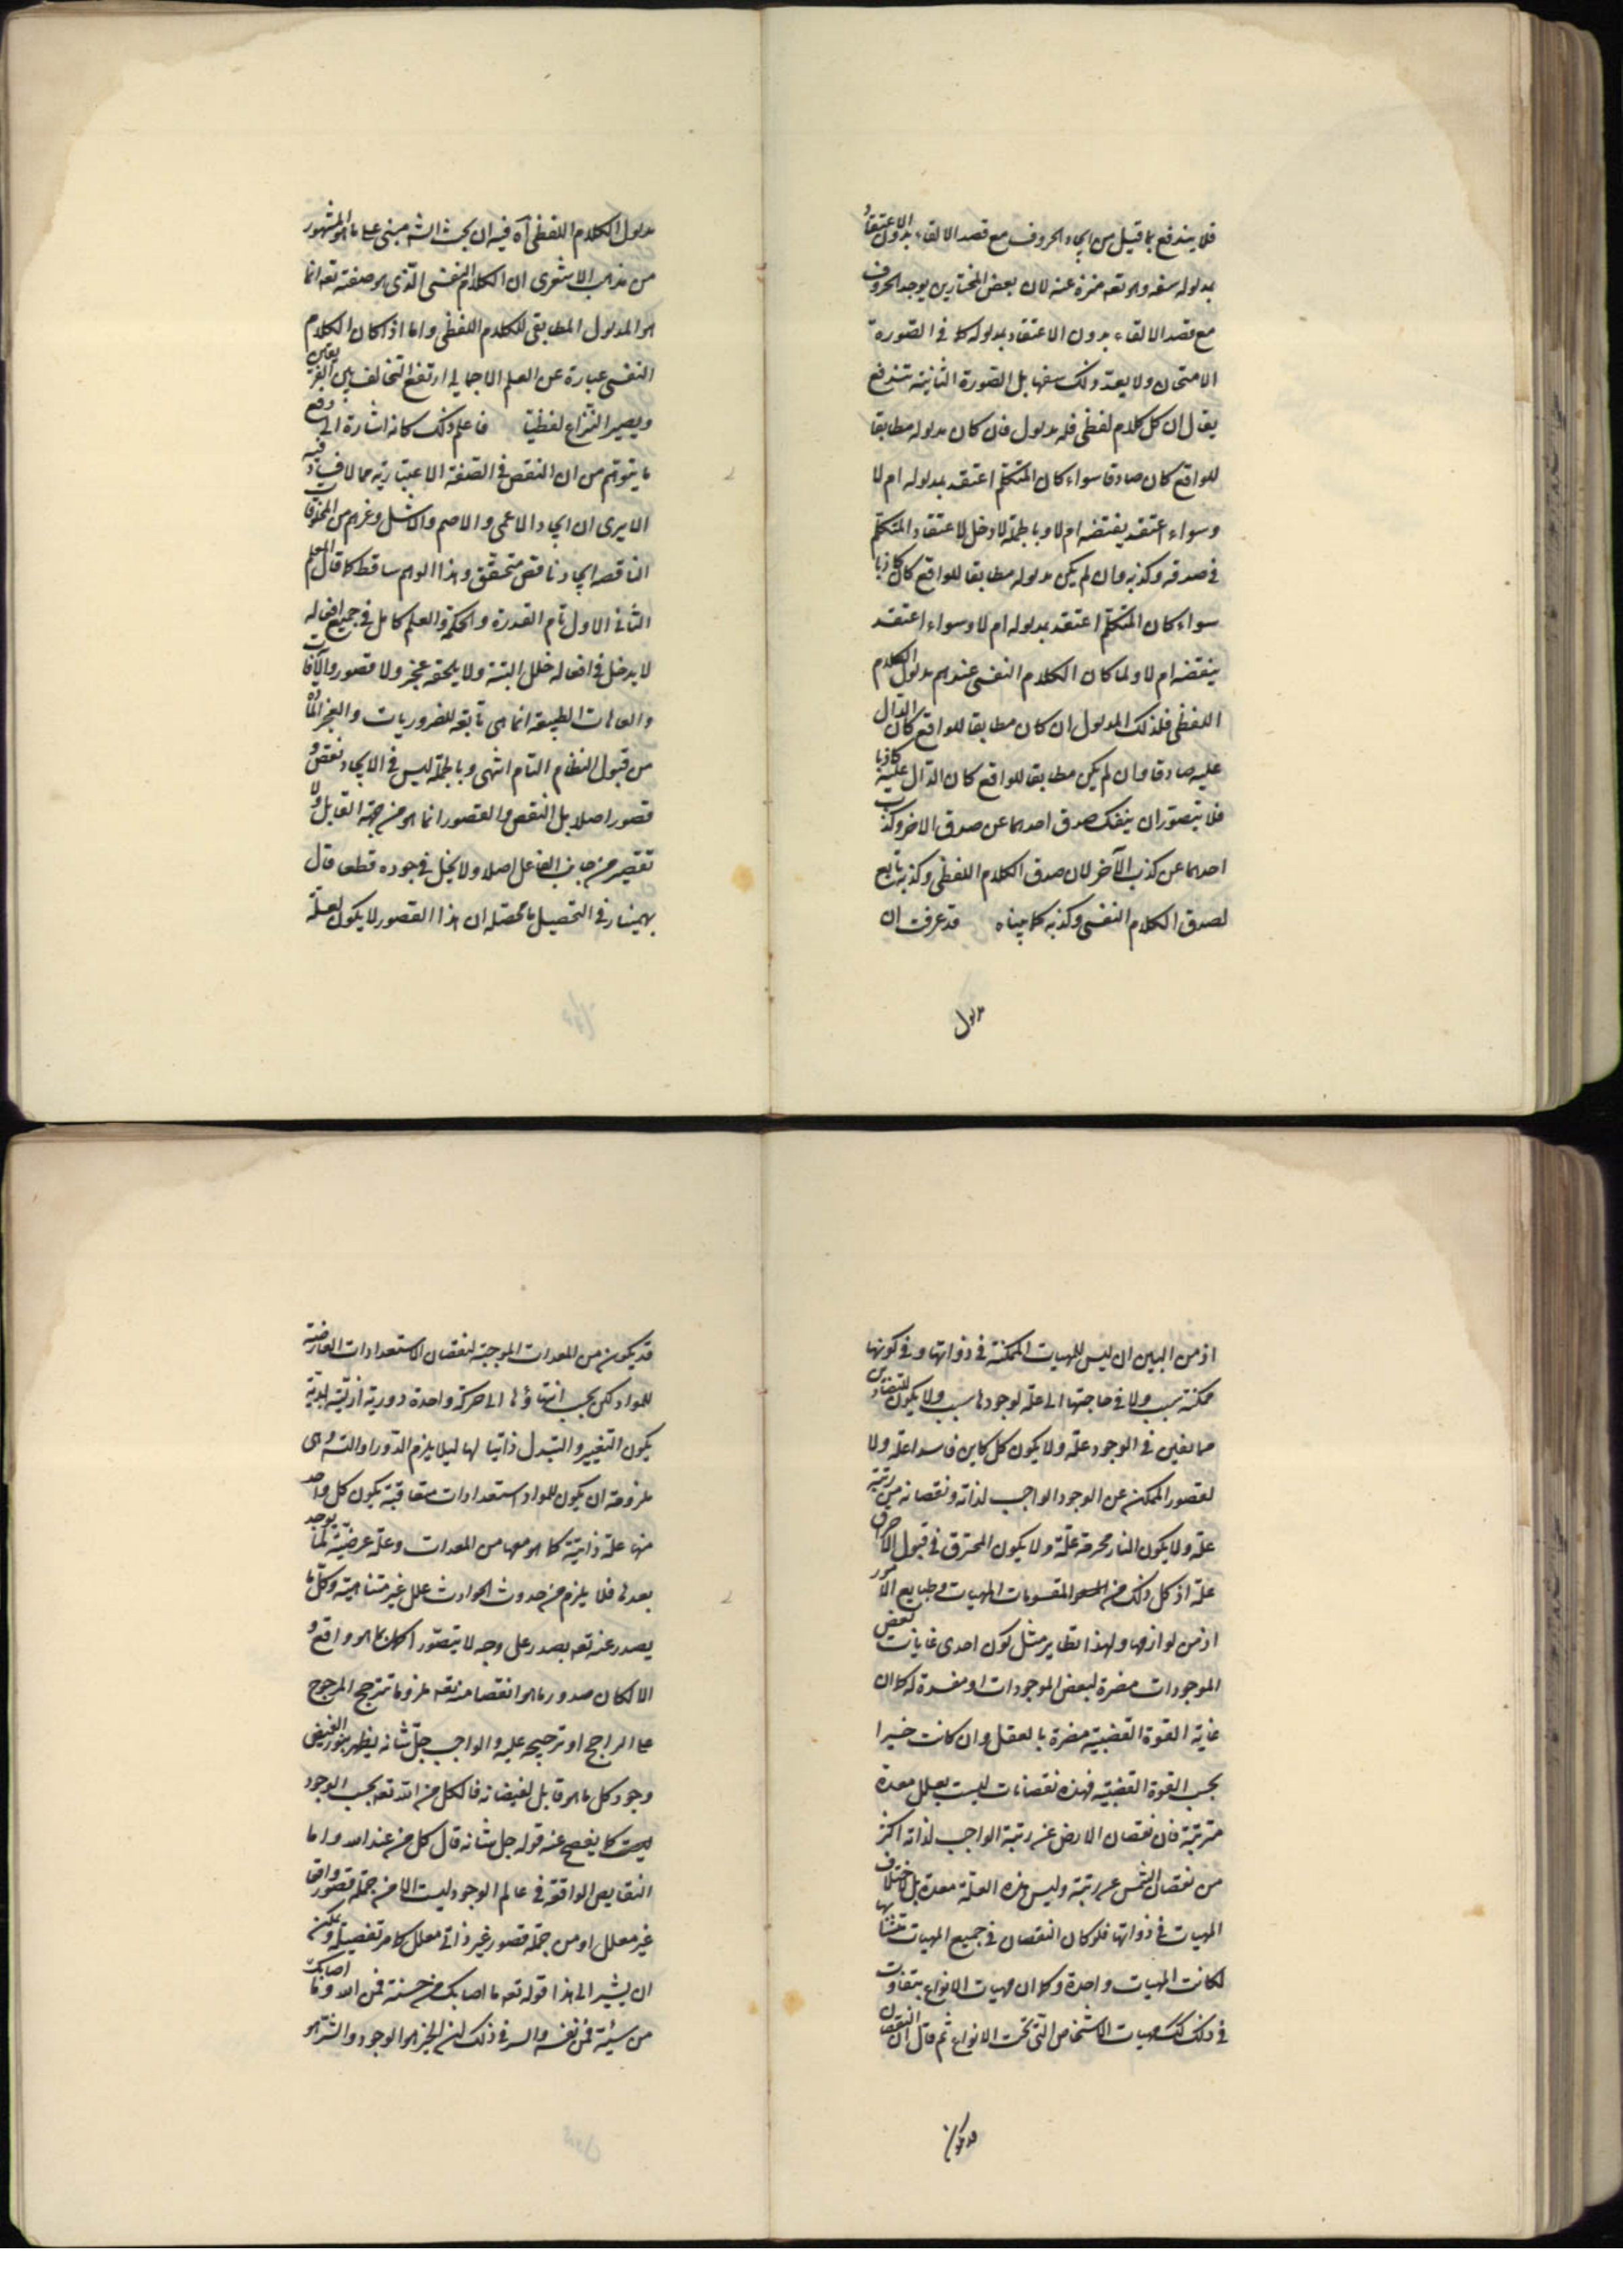 فلا يندفع بما قيل من ايجاد الحروف مع قصد الالقاء بدون الاعتقاد
بمدلوله سفه وهو تعه منزه عنه لان بعض المختارين يوجد الحروف
مع قصد الالقاء بدون الاعتقاد بمدلوله كما فى الصورة
الامتحان ولا يعد ذلك سفها بل الصورة الثانية تندفع
يقال ان كل كلام لفظى فله مدلول فان كان مدلوله مطابقا
للواقع كان صادقا سواء كان المتكلم اعتقد بمدلوله ام لا
وسواء اعتقد بنقضه ام لا وبالجملة لا دخل لاعتقاد المتكلم
فى صدقه وكذبه وان لم يكن مدلوله مطابقا للواقع كان كاذبا
سواء كان المتكلم اعتقد بمدلوله ام لا وسواء اعتقد
بنقضه ام لا ولما كان الكلام النفسى عندهم مدلول الكلام
اللفظى فلذلك المدلول ان كان مطابقا للواقع كان الدال
عليه صادقا وان لم يكن مطابقا للواقع كان الدال عليه كاذبا
فلا يتصور ان ينفك صدق احدهما عن صدق الاخر وكذب
احدهما عن كذب الآخر لان صدق الكلام اللفظى وكذبه تابع
لصدق الكلام النفسى وكذبه كما بيناه قد عرفت ان
مدلول
مدلول الكلام اللفظى آه فيه ان بحث الشه مبنى على ما هو المشهور
من مذهب الاشعرى ان الكلام النفسى الذى هو صفته تعه انما
هو المدلول المطابقى للكلام اللفظى واما اذا كان الكلام
النفسى عبارة عن العلم الاجمالى ارتفع التخالف بين الفريقين
ويصير النزاع لفظيا فاعلم ذلك كانه اشارة الى دفع
ما يتوهم من ان النقص فى الصفة الاعتبارية مما لا فساد فيه
الا يرى ان ايجاد الاعمى والاصم والاشل وغيرهم من المخلوقات
الناقصه ايجاد ناقص متحقق وهذا الوهم ساقط كما قال المعلم
الثانى الاول تام القدرة والحكمة والعلم كامل فى جميع افعاله
لا يدخل فى افعاله خلل البتة ولا يلحقه عجز ولا قصور والآفات
والعاهات الطبيعية انما هى تابعة للضروريات ولعجز المادة
من قبول النظام التام انتهى وبالجملة ليس فى الايجاد نقص و
قصور اصلا بل النقص والقصور انما هو من جهة القابل ولا
تقصير من جانب الفاعل اصلا ولا بخل فى جوده قطعا قال
بهمنيار فى التحصيل ما محصله ان هذا القصور لا يكون لعلة
اذ من البين ان ليس للمهيات الممكنة فى ذواتها وفى كونها
ممكنة سبب ولا فى حاجتها الى علة لوجودها سبب ولا يكون للتضادين
ممانعين فى الوجود علة ولا يكون كل كاين فاسدا علة ولا
لقصور الممكن عن الوجود الواجب لذاته ونقصانه من رتبته
علة ولا يكون النار محرقة علة ولا يكون المحترق فى قبول الاحراق
علة اذ كل ذلك من المقومات المهيات وطبايع الامور
اذ من لوازمها ولهذا نظاير مثل كون احدى غايات بعض
الموجودات مضرة لبعض الموجودات او مفسدة له كما ان
غاية القوة الغضبية مضرة بالعقل وان كانت خيرا
بحسب القوة الغضبية فهذه نقصانات ليست بعلل معدة
مترتبة فان نقصان الارض عن رتبة الواجب لذاته اكثر
من نقصان الشمس عن رتبة وليس هذه العلة معدة بل لاختلاف
المهيات فى ذواتها فلو كان النقصان فى جميع المهيات متشابها
لكانت المهيات واحدة وكما ان مهيات الانواع يتفاوت
فى ذلك كك مهيات الاشخاص التى تحت الانواع ثم قال ان النقصان
قد يكون
قد يكون من المعدات الموجبة لنقصان الاستعدادات العارضة
للمواد لكن يجب انتهاؤها الى حركة واحدة دورية ازلية ابدية
يكون التغيير والتبدل ذاتيا لها ليلا يلزم الدور او التسه وهى
ملزومة ان يكون للمواد استعدادات متعاقبة يكون كل واحد
منها علة ذاتية كما هو معها من المعدات وعلة عرضية لما يوجد
بعدها فلا يلزم من حدوث الحوادث علل غير متناهية وكل ما
يصدر عنه تعه يصدر على وجه لا يتصور اكمل مما هو واقع و
الا لكان صدور ما هو انقص منه تعه ملزوما ترجح المرجوح
على الراجح او ترجيحه عليه والواجب جل شانه يظهر بنور الفيض
وجود كل ما هو قابل لفيضانه فالكل من الله تعه بحسب الوجود
كما يفصح عنه قوله جل شانه قال كل من عند الله واما
النقايص الواقعة فى عالم الوجود ليست الا من جملة قصور ذاتى
غير معلل او من جملة قصور غير ذاتى معلل كما مر تفصيله ويمكن
ان يشير الى هذا قوله تعه ما اصابك من حسنة فمن الله وما اصابك
من سيئة فمن نفسه والسر فى ذلك ان الخير هو الوجود والشر هو